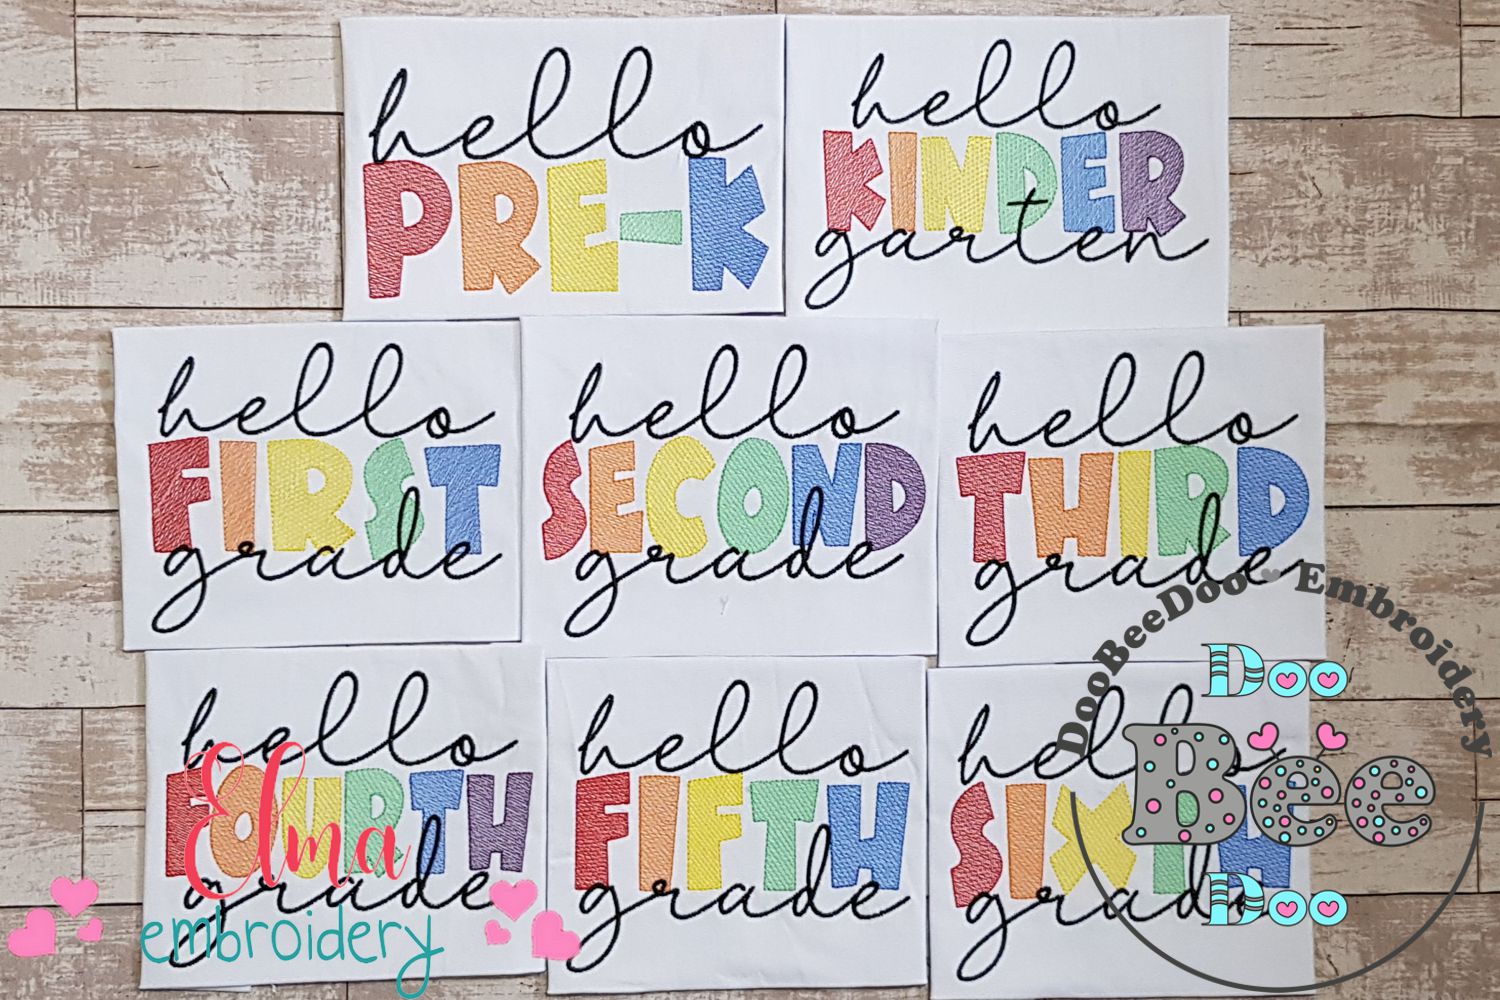 hello
PRE-K
hello
KINDER
garten
hello
FIRST
grade
hello
SECOND
grade
hello
THIRD
grade
hello
FOURTH
grade
Elma
embroidery
hello
FIFTH
grade
hello
SIXTH
grade
DooBeeDoo - Embroidery
Doo
Bee
Doo